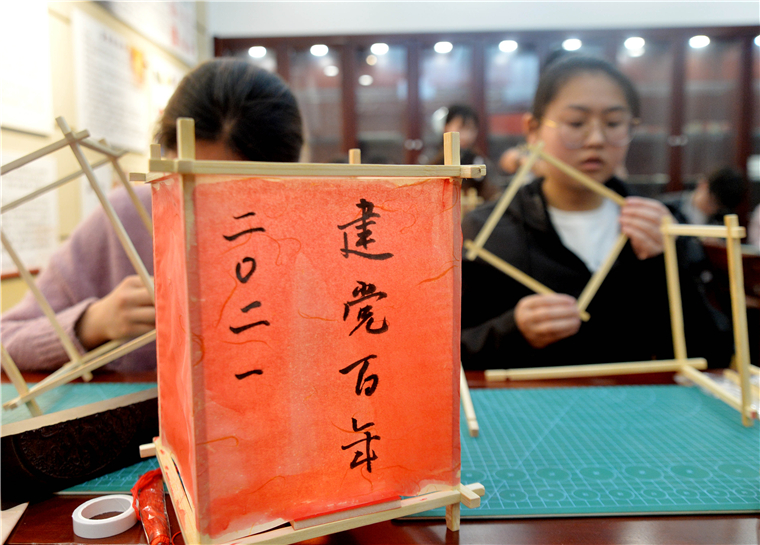 建党百年
二〇二一